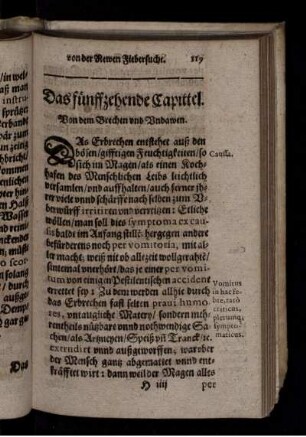 von der Newen Fiebersucht. 119
Das fünffzehende Capittel.
Von dem Brechen vnd Vndawen.
DAs Erbrechen entstehet auß den
bösen/giffrigen Feuchtigkeiten/so
sich im Magen/als einen Koch-
hafen des Menschlichen Leibs leichtlich
versamlen/vnd auffhalten/auch ferner jh-
rer viele vnnd schärffe nach selben zum V-
berwürff irritirn vnd verrigen: Etliche
wöllen/man soll dis symptoma ex cau-
dicibald im Anfang stillē: hergegen andere
befürdernts noch per vomitoria, mit al-
ler macht: weiß nit ob allzeit wollgraht/
sintemal vnerhört/das je einer per vomi-
tum von einigen Pestilentischen accident
errettet sey: Zu dem werden allhie durch
das Erbrechen fast selten praui humo-
res, vntaugliche Matery/ sondern meh-
rentheils nützbare vnnd nothwendige Sa-
chen/als Artzneyen/Speiß vñ Tranck/rc.
extrudirt vnnd außgeworffen, warober
der Mensch gantz abgemattet vnnd ent-
kräfftet wirt: dann weil der Magen alles
H iiij per
Causa.
Vomitus
in hac fe-
bre, rarò
criticus,
plerumq;
sympto-
maticus.
Das